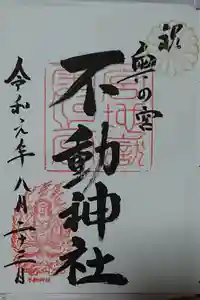 祝
奥の宮
不動神社
令和元年八月二十三日